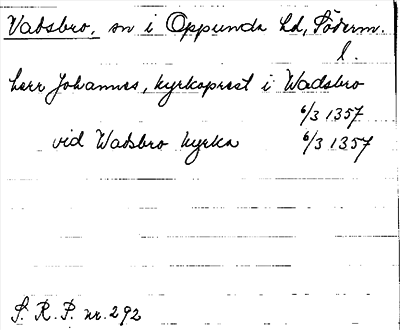 Vadsbro, sn i Oppunda hd, Söderm.
l.
herr Johannes, kyrkoprest i Wadsbro
6/3 1357
vid Wadsbro kyrka 6/3 1357
S. R. P. nr. 292